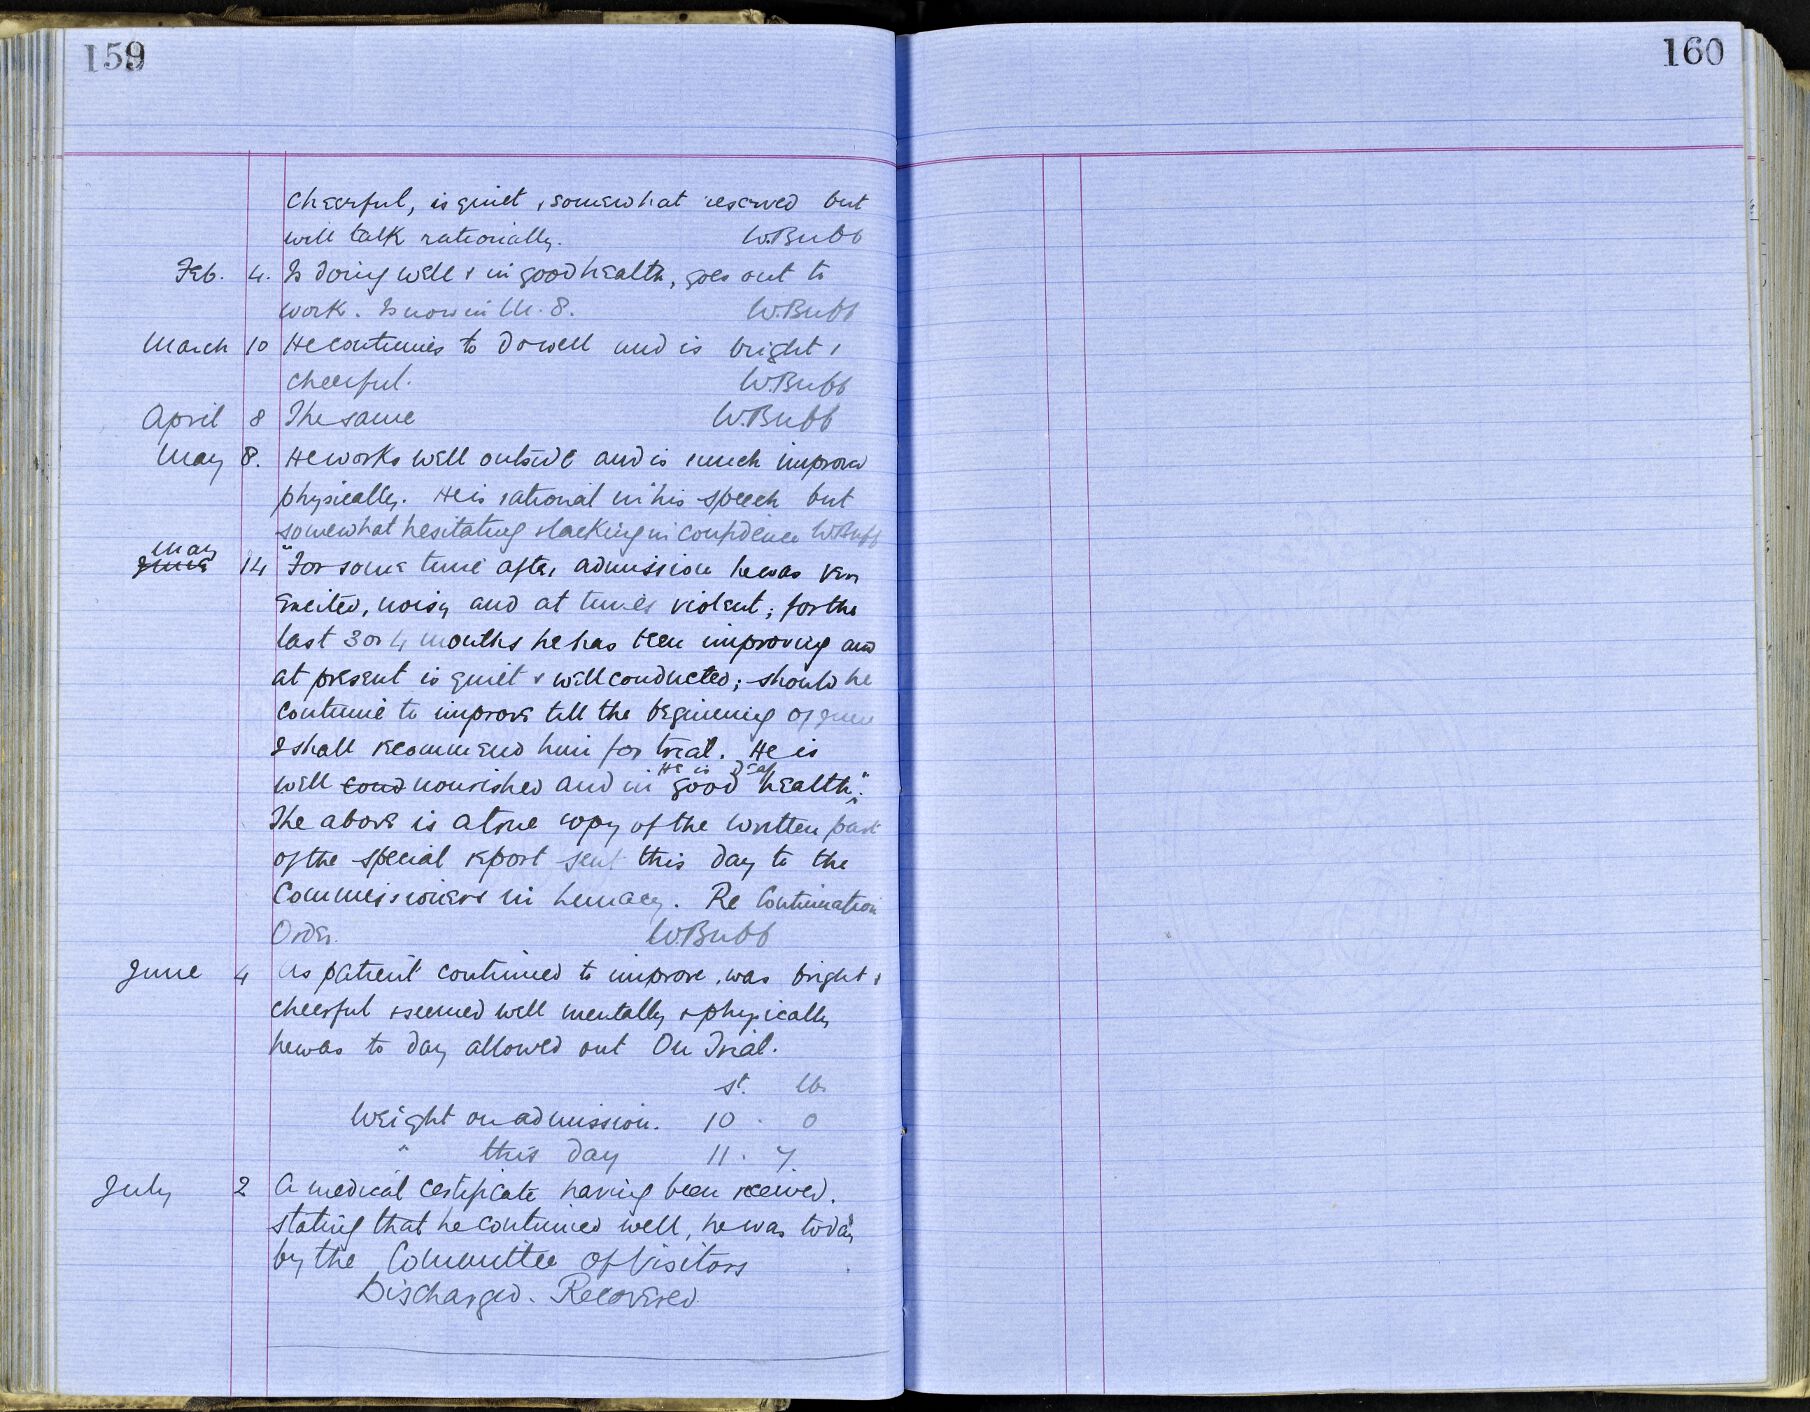 159
cheerful, is quiet & somewhat reserved but
will talk rationally. W.Bubb
Feb. 4. Is doing well & in good health, goes out to
work. Is now in M. 8. W.Bubb
March 10 He continues to do well and is bright &
cheerful. W.Bubb
April 8 The same W.Bubb
May 8. He works well outside and is much improved
physically. He is rational in his speech but
somewhat hesitating & lacking in confidence W.Bubb
May
June 14 "For some time after admission he was very
excited, noisy and at times violent; for the
last 3 or 4 months he has been improving and
at present is quiet & well conducted; should he
continue to improve till the beginning of June
I shall recommend him for trial. He is
He is deaf
well cond nourished and in good health."
The above is a true copy of the written part
of the special report sent this day to the
Commissioners in Lunacy. Re Continuation
Order. W.Bubb
June 4 As patient continued to improve, was bright &
cheerful & seemed well mentally & physically
he was to day allowed out On Trial.
st. lbs
Weight on admission. 10 . 0
" this day 11 . 7
July 2 A medical certificate having been received.
stating that he continued well, he was today
by the Committee of Visitors
Discharged. Recovered
160